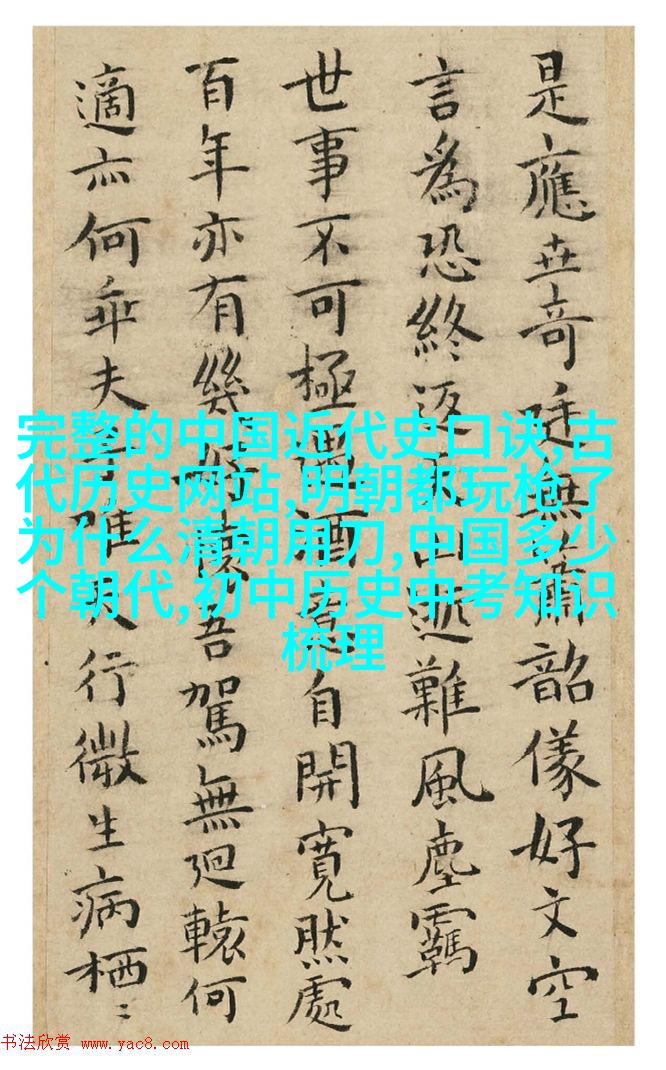 是應奇廷無蕭韶儀好文空
言為恐終返迹難風塵羈
世事不可極遇酒自開寬然處
百年亦有幾吾駕無迴轅何
適亦何乖夫雖行微生病栖〻
完整的中国近代史口诀,古
代历史网站,明朝都玩枪了
为什么清朝用刀,中国多少
个朝代,初中历史中考知识
梳理
书法欣赏 www.yac8.com